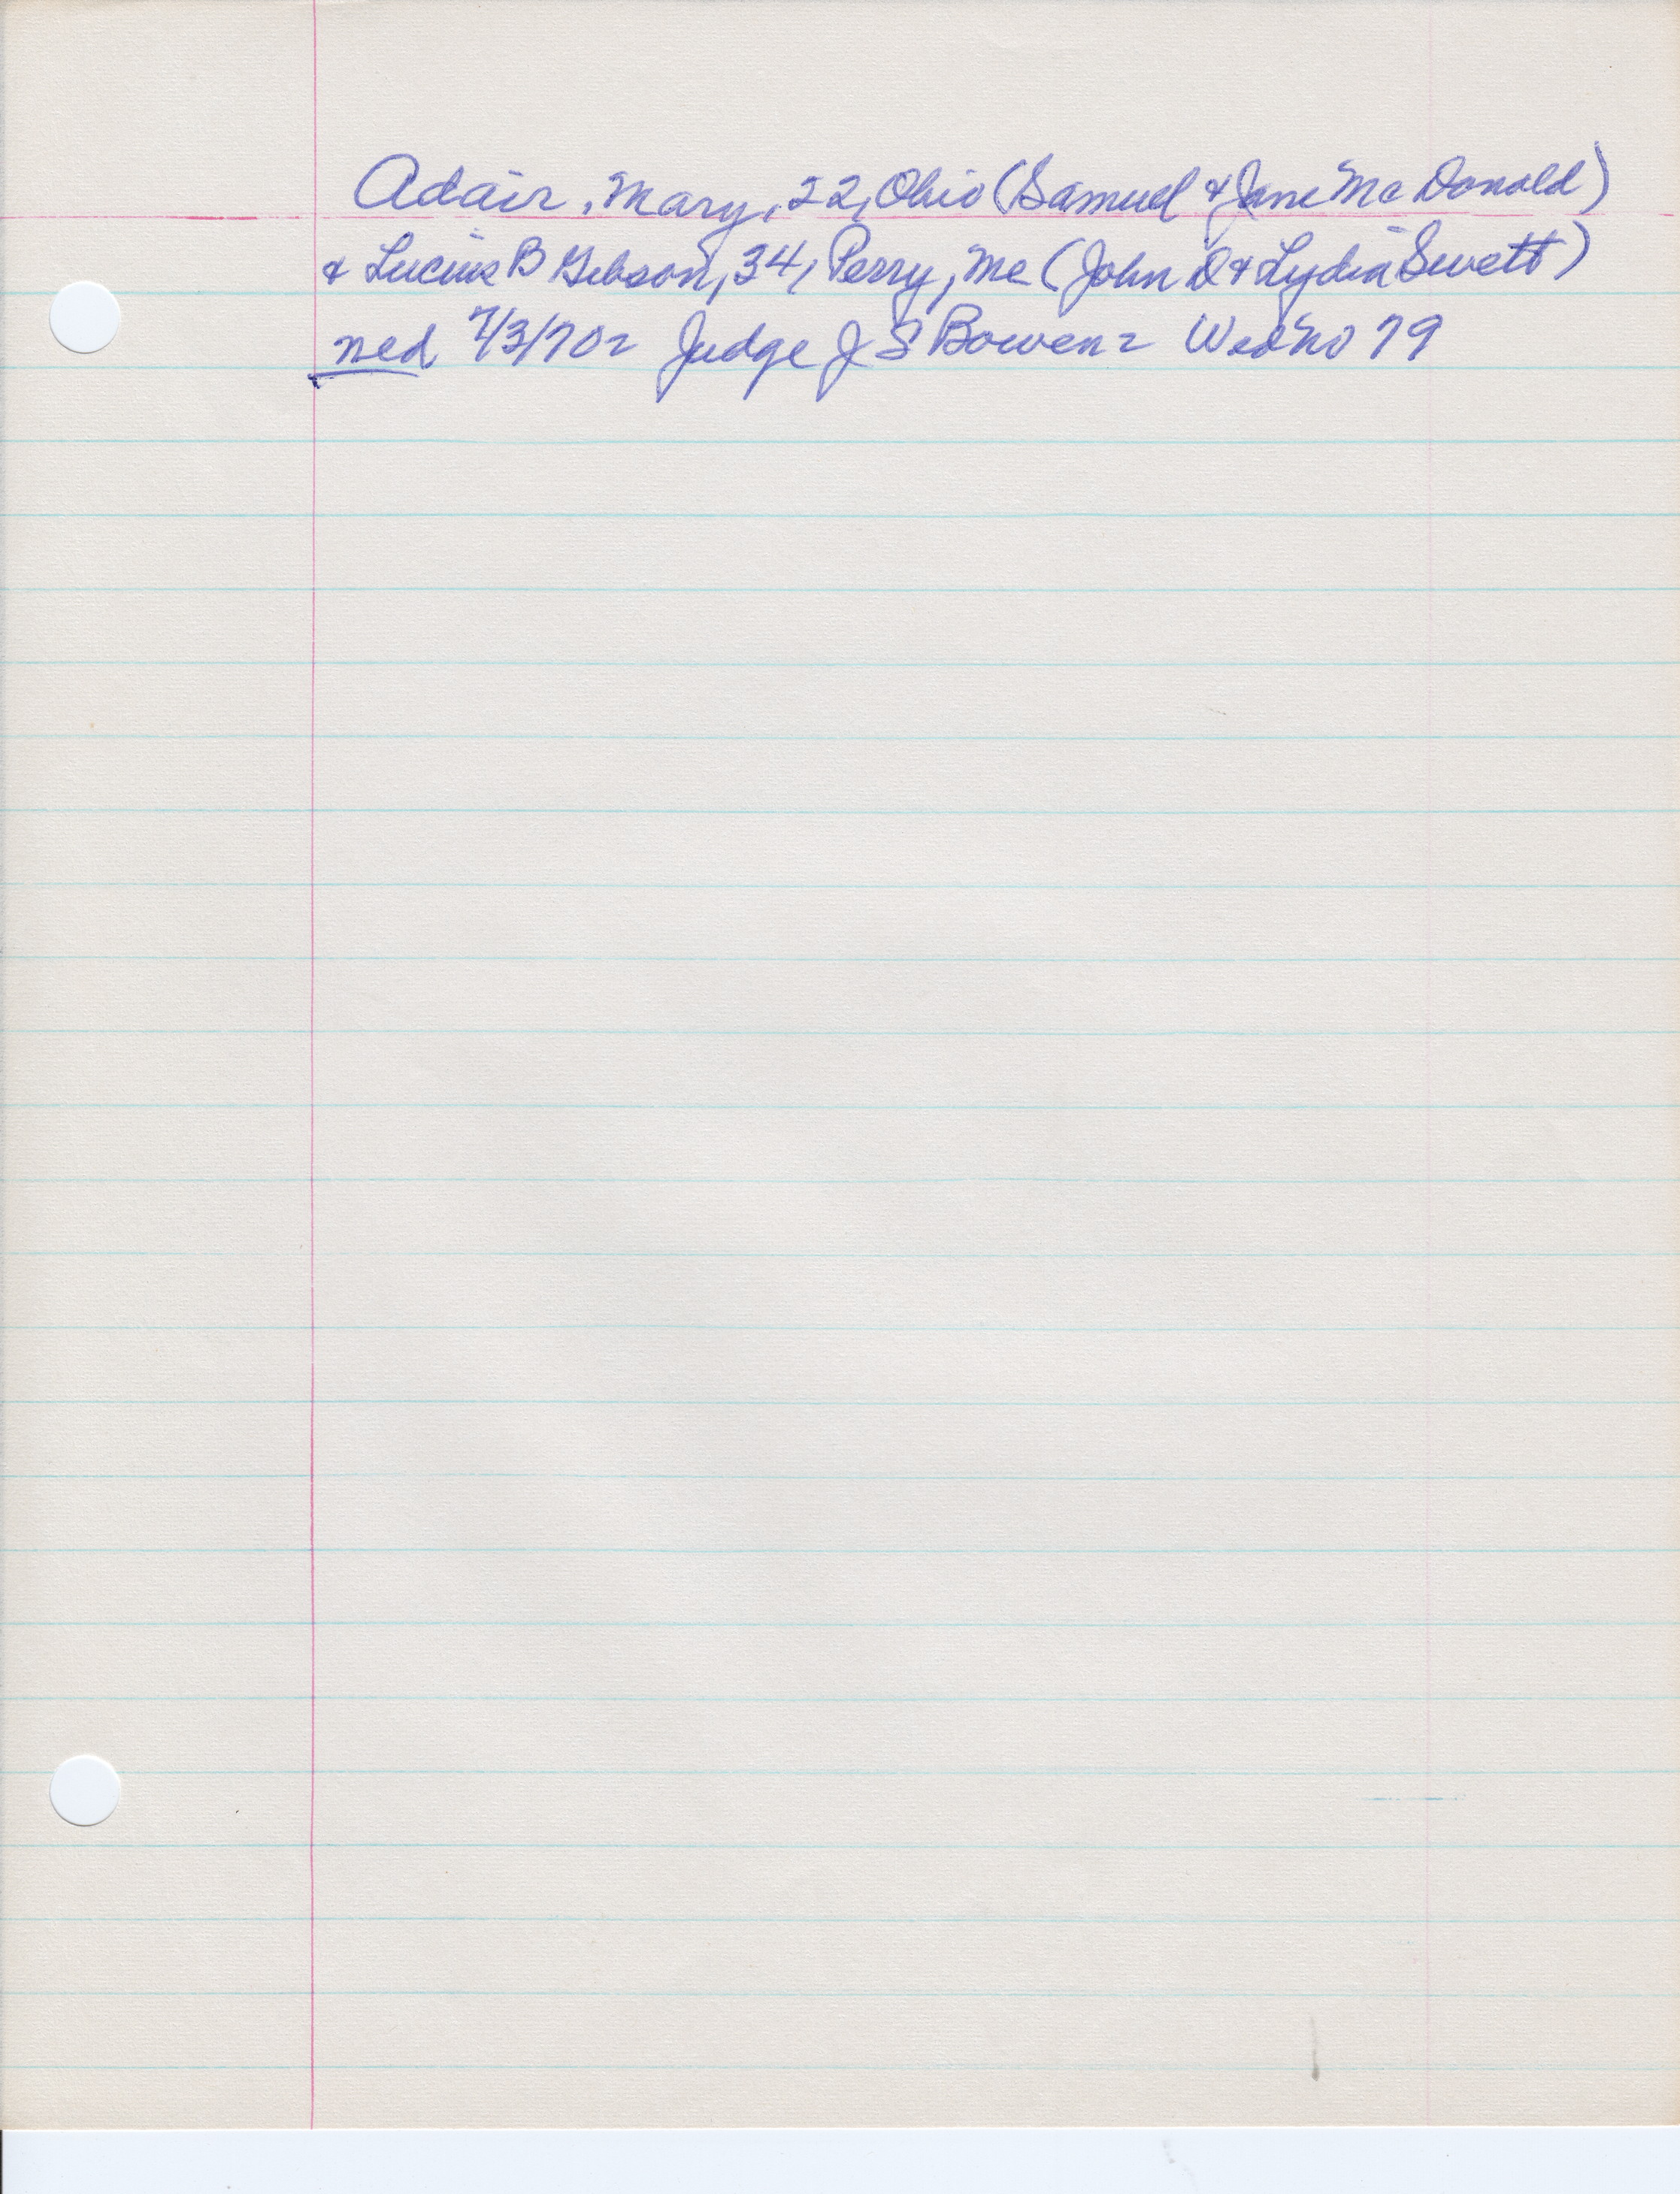 Adair, Mary, 22, Ohio (Samuel & Jane McDonald)
& Lucius B Gibson, 34, Perry, Me (John D & Lydia Swett)
med 7/3/70= Judge J S Bowen= Wed No 79